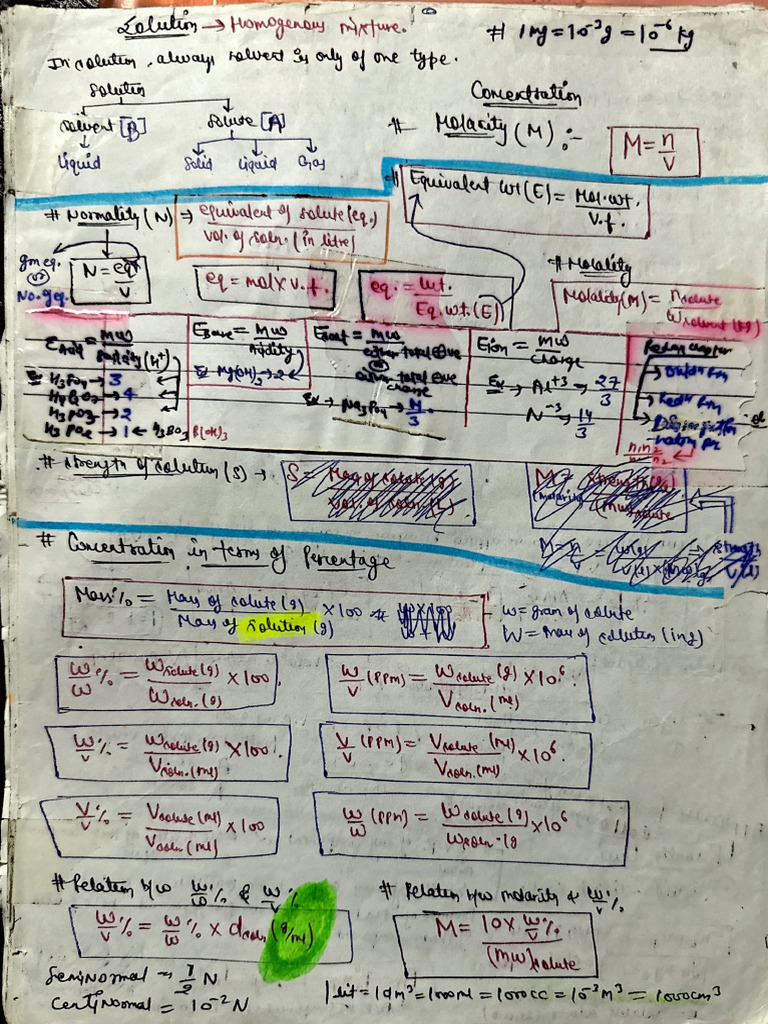 Solution → Homogenous mixture.
# 1mg = 10⁻³g = 10⁻⁶ kg
In solution, always solvent is only of one type.
Solution
Solvent [B] Solute [A]
Liquid Solid Liquid Gas
Concentration
# Molarity (M) :-
M = n/v
# Equivalent wt (E) = Mol. wt. / v.f.
# Normality (N) ⇒ equivalent of solute (eq.) / vol. of soln. (in litre)
gm eq.
or
No. g eq.
N = eq/v
eq = mol x v.f.
eq. = wt. / Eq. wt. (E)
# Molality
Molality (M) = n solute / W solvent (kg)
E Acid = mw / Basicity (H⁺)
Ex H₃PO₄ → 3
→ 4
H₃PO₃ → 2
H₃PO₂ → 1 ← H₃BO₃ B(OH)₃
E Base = mw / Acidity
Ex Mg(OH)₂ → 2
E salt = mw / either total ⊕ve
or
either total ⊖ve charge
Ex → Na₃PO₄ → M/3
E ion = mw / charge
Ex → Al⁺³ → 27/3
N⁻³ → 14/3
Redox chapter
→ Oxidn rxn
→ Redn rxn
# Strength of solution (S) →
# Concentration in terms of Percentage
Mass% = Mass of solute (g) / Mass of solution (g) × 100
w = gram of solute
W = Mass of solution (in g)
w/w % = W solute (g) / W soln. (g) × 100
w/v (PPm) = W solute (g) / V soln. (ml) × 10⁶
w/v % = W solute (g) / V soln. (ml) × 100
v/v (PPm) = V solute (ml) / V soln. (ml) × 10⁶
v/v % = V solute (ml) / V soln. (ml) × 100
w/w (PPm) = W solute (g) / W soln. (g × 10⁶
# Relation b/w w/w % & w/v %
w/v % = w/w % × d soln (g/ml)
# Relation b/w molarity & w/v %
M = 10 × w/v % / (mw) solute
Seminormal = 1/2 N
Centinormal = 10⁻² N
1 lit = 1dm³ = 1000ml = 1000cc = 10⁻³m³ = 1000cm³